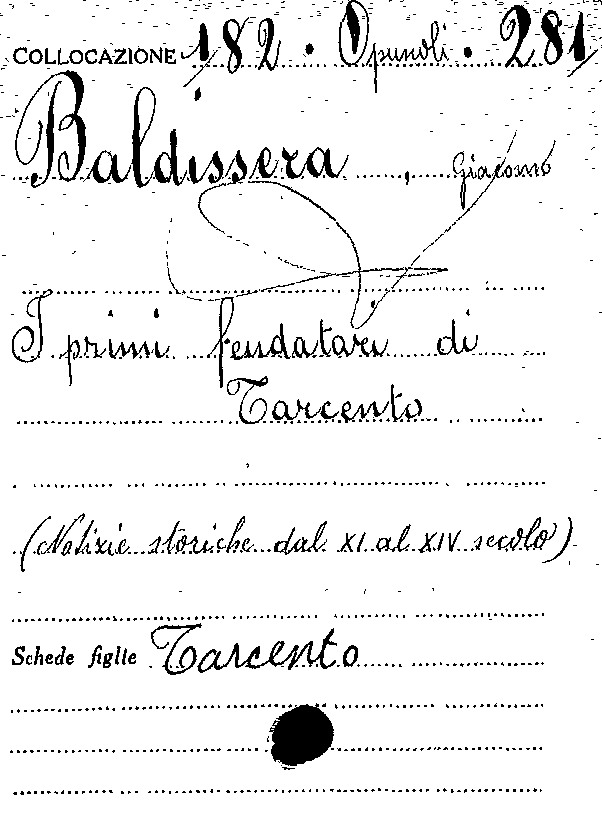 COLLOCAZIONE 182 · Opuscoli · 281
Baldissera, Giacomo
I primi feudatari di
Tarcento
(Notizie storiche dal XI al XIV secolo)
Schede figlie Tarcento